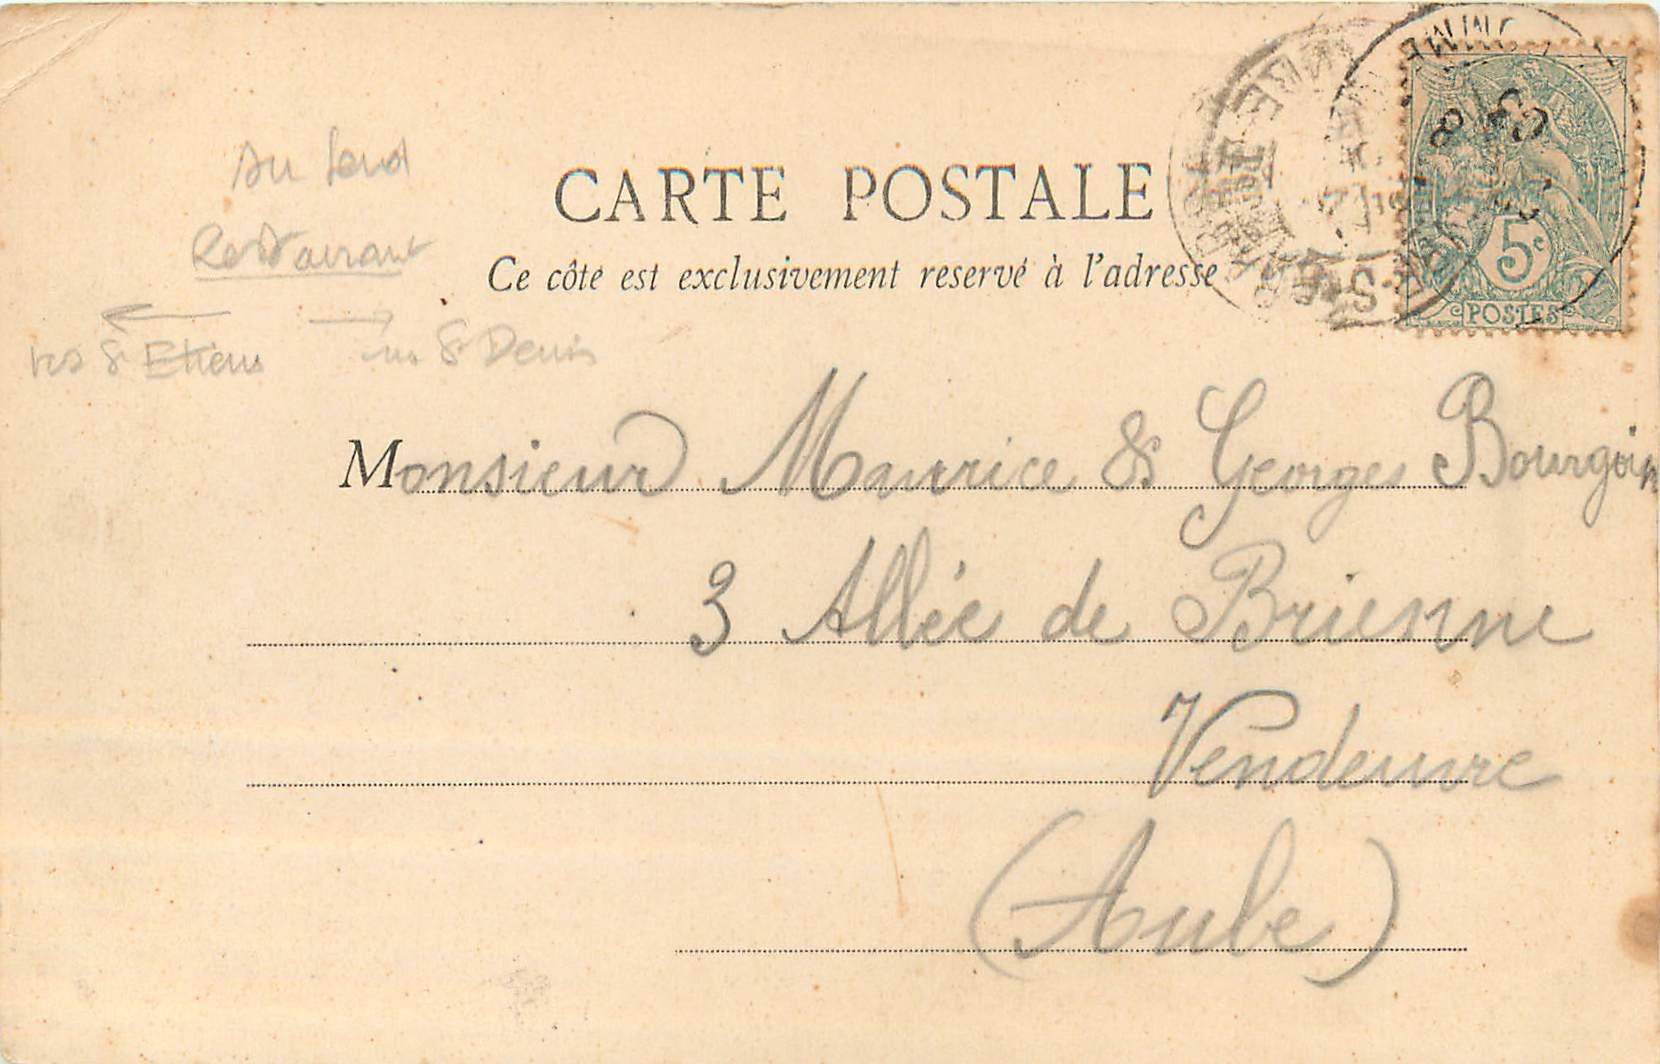 CARTE POSTALE
Ce côté est exclusivement reservé à l'adresse
5c
POSTES
au fond
Restaurant
← →
St Etienne St Denis
Monsieur Maurice & Georges Bourgoin
3 Allée de Brienne
Vendeuvre
(Aube)